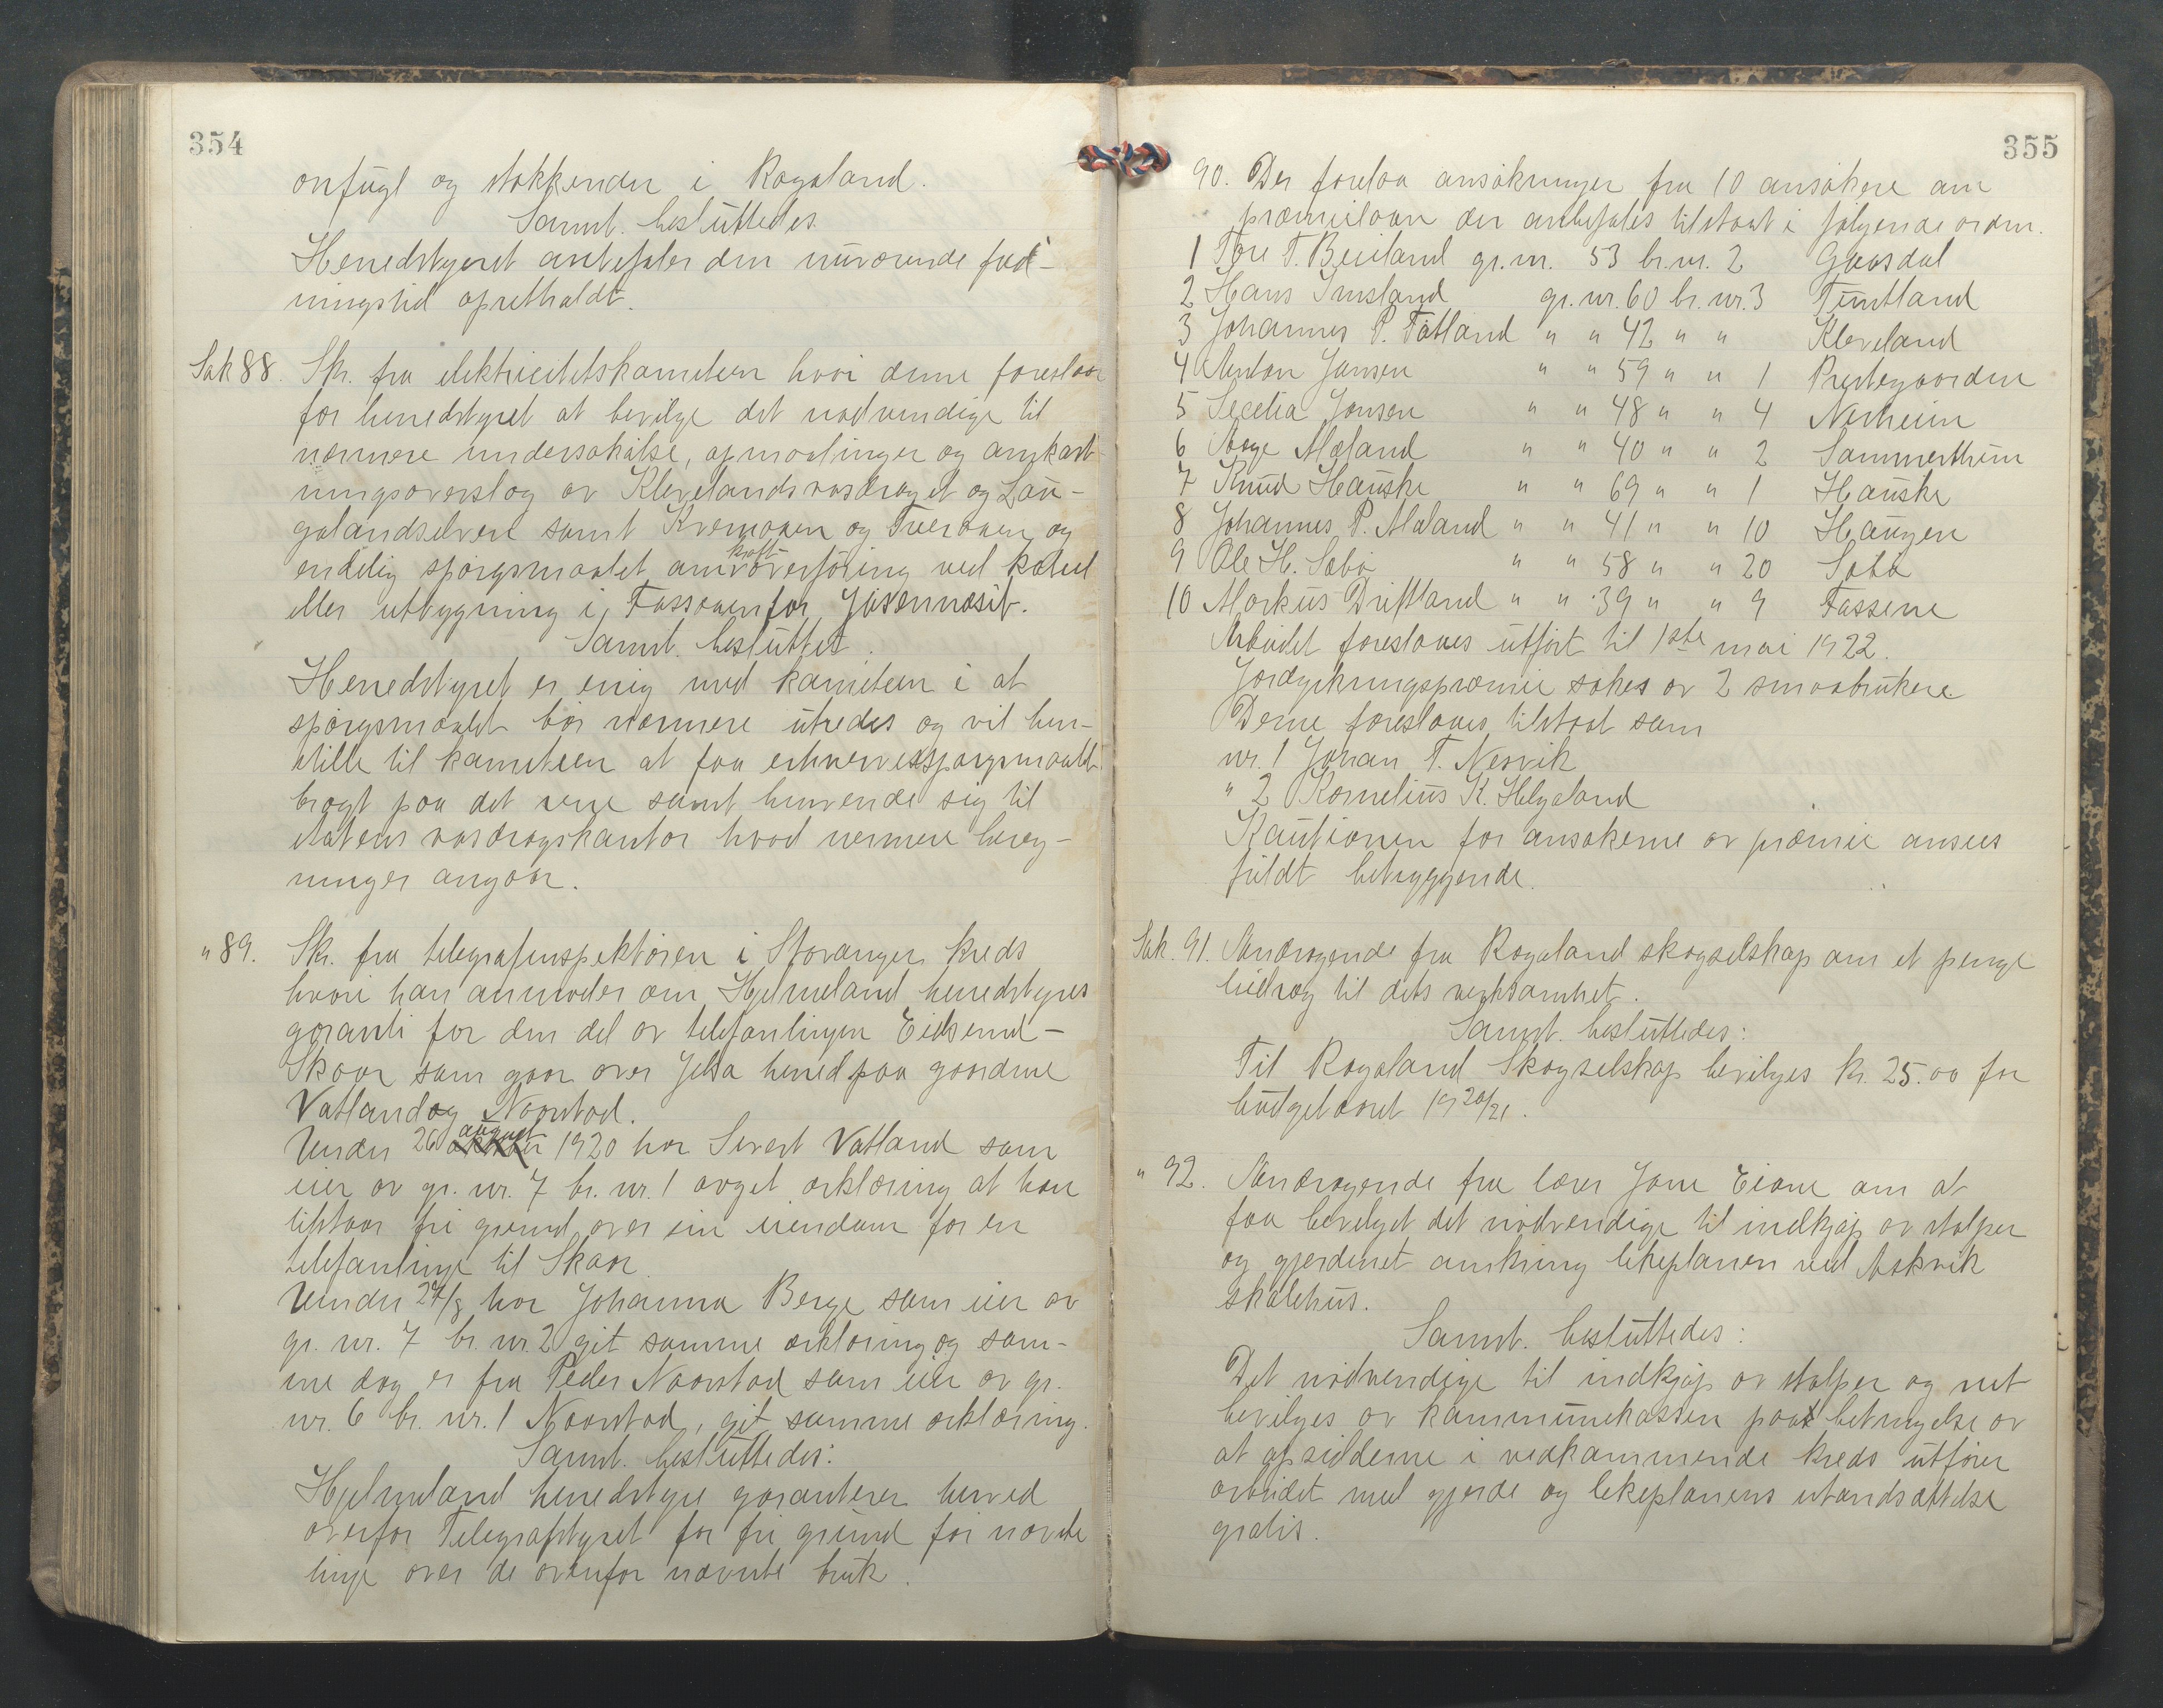 354
orfugl og stokkender i Rogaland.
Samt. besluttedes.
Herredstyret anbefaler den nuværende fred-
ningstid opretholdt.
Sak 88. Skr. fra elektricitetskomiteen hvori denne foreslaar
for herredstyret at bevilge det nødvendige til
nærmere undersøkelse, opmaalinger og omkost
ningsoverslag av Klevelandsvasdraget og
galandselven samt Kvernaaen og Tveraaen og
endelig spørgsmaalet om kraft-overføring ved kabel
eller utbygning i Fossaaen for Jøsenneset.
Samt. besluttet.
Herredstyret er enig med komiteen i at
spørgsmaalet bør nærmere utredes og vil hen-
stille til komiteen at faa erhvervesspørgsmaalet
bragt paa det rene samt henvende sig til
statens vasdragskontor hvad nermere bereg-
ninger angaar.
" 89. Skr. fra telegrafinspektøren i Stavanger kreds
hvori han anmoder om Hjelmeland herredstyres
garanti for den del av telefonlinjen Eidsend-
Skaar som gaar over Jelsa herred paa gaardene
Vatland og Naarstad.
Under 26 august 1920 har Sivert Vatland som
eier av gr. nr. 7 br. nr. 1 avget erklæring at han
tilstaar fri grund over sin eiendom for en
telefonlinje til Skaar
Under 27/8 har Johanna Berge som eier av
gr. nr. 7 br. nr. 2 git samme erklæring og sam-
me dag er fra Peder Naarstad som eier av gr.
nr. 6 br. nr. 1 Naarstad, git samme erklæring.
Samt. besluttedes:
Hjelmeland herredstyre garanterer herved
overfor Telegrafstyret for fri grund for nævnte
linje over de ovenfor nævnte bruk.
355
90. Der forelaa ansøkninger fra 10 ansøkere om
præmielaan der anbefales tilstaat i følgende orden.
1 Tore T. Beiland gr. nr. 53 br. nr. 2 Gaasdal
2 Hans Imsland gr. nr. 60 br. nr. 3 Tuntland
3 Johannes P. Tøtland " " 42 " " Kleveland
4 Anton Jansen " " 59 " " 1 Prestegaarden
5 Secelia Jonsen " " 48 " " 4 Nerheim
6 Aage Mæland " " 40 " " 2 Sommertheim
7 Knud Hauske " " 69 " " 1 Hauske
8 Johannes P. Mæland " " 41 " " 10 Haugen
9 Ole H. Sæbø " " 58 " " 20 Sæbø
10 Markus Driftland " " 39 " " 9 Fossene
Arbeidet foreslaaes utført til 1ste mai 1922.
Jordyrkningspræmie søkes av 2 smaabrukere
Denne foreslaaes tilstaat som
nr. 1 Johan T. Nesvik
" 2 Kornelius K. Helgaland
Kautionen for ansøkerne av præmie ansees
fuldt betryggende.
Sak. 91. Andragende fra Rogaland skogselskap om et penge
bidrag til dets verksamhet.
Samt. besluttedes:
Til Rogaland Skogselskap bevilges kr. 25.00 for
budgetaaret 1920/21.
" 92. Andragende fra lærer Jone Eiane om at
faa bevilget det nødvendige til indkjøp av stolper
og gjerdenet omkring lekeplanen ved Askvik
skolehus.
Samt. besluttedes:
Det nødvendige til indkjøp av stolper og net
bevilges av kommunekassen paa betingelse av
at opsidderne i vedkommende kreds utfører
arbeidet med gjerde og lekeplanens istandsættelse
gratis.